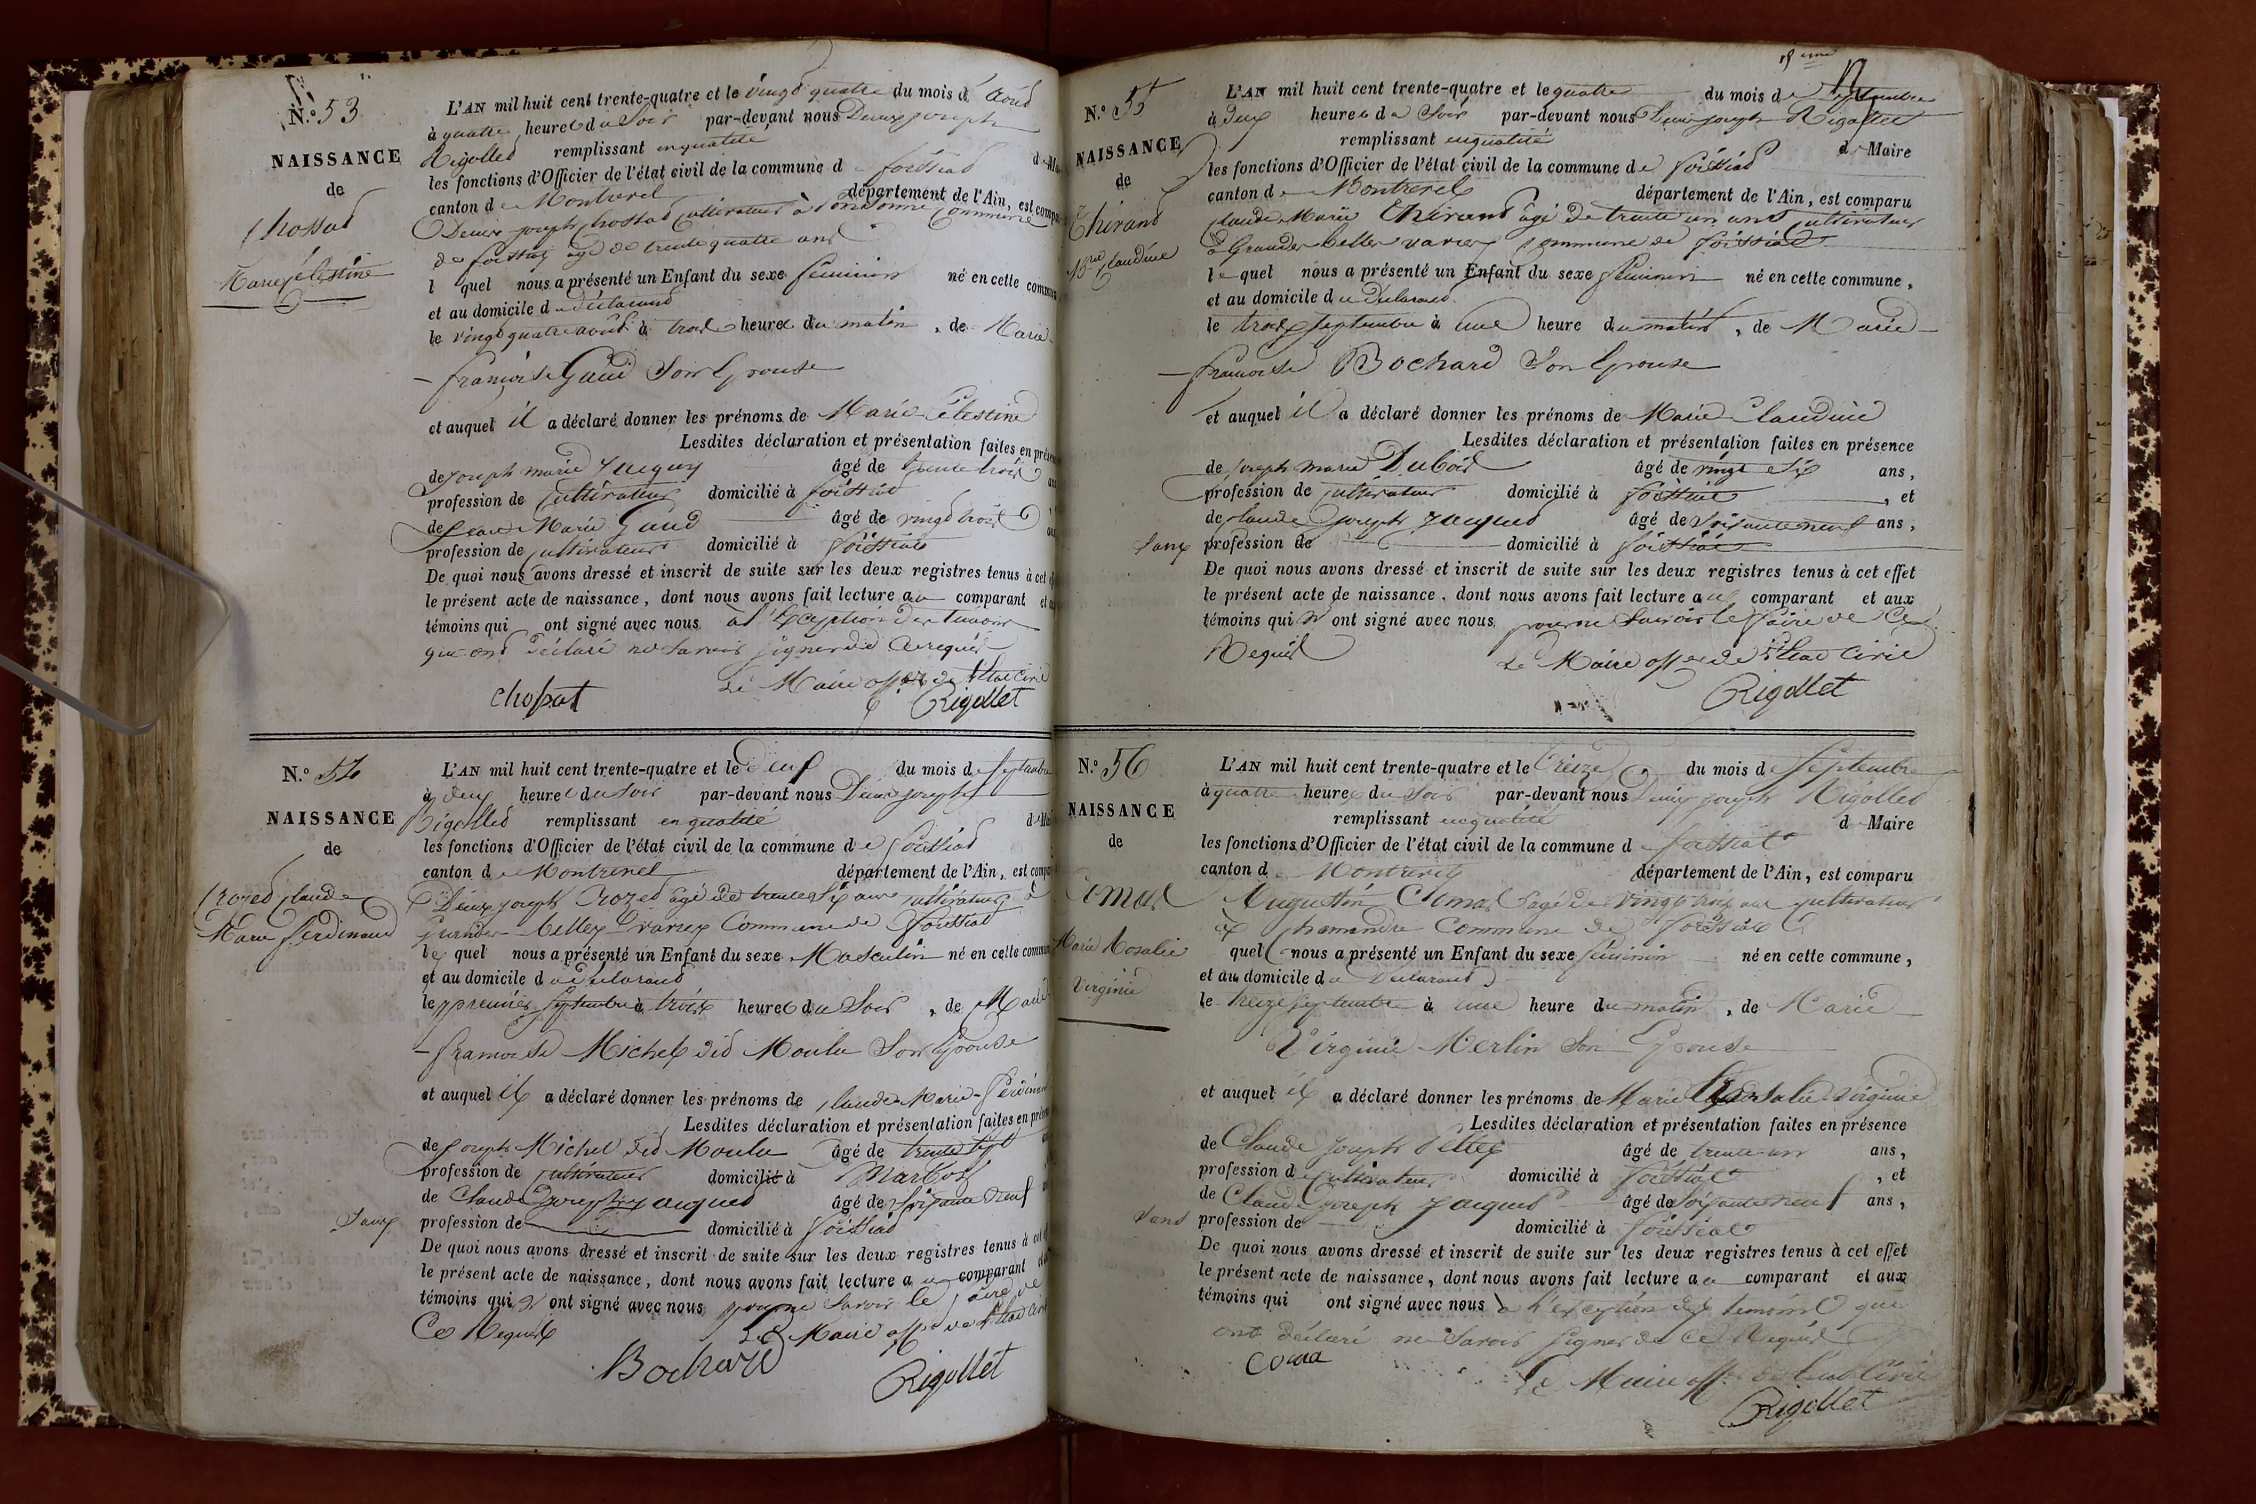 N.º 53
NAISSANCE
de
Chossat
Marie Célestine
L'AN mil huit cent trente-quatre et le vingt quatre du mois d'août
à quatre heures du soir par-devant nous Denis joseph
Rigollet remplissant en qualité de
les fonctions d'Officier de l'état civil de la commune de foissiat
canton de Montrevel département de l'Ain, est
Denis joseph chossat cultivateur à commune
de foissiat agé de trente quatre ans
l quel nous a présenté un Enfant du sexe féminin né en cette
et au domicile du déclarant
le vingt quatre août à trois heures du matin, de Marie
françoise Gaud Son Epouse
et auquel il a déclaré donner les prénoms de Marie Célestine
Lesdites déclaration et présentation faites en
de joseph marie âgé de trente trois
profession de cultivateur domicilié à foissiat
de Marie Gaud âgé de vingt trois
profession de cultivateur domicilié à foissiat
De quoi nous avons dressé et inscrit de suite sur les deux registres tenus à cet
le présent acte de naissance, dont nous avons fait lecture au comparant et
témoins qui ont signé avec nous à l'Exception des temoins
qui ont déclaré ne Savoir signer de ce requis
Le Maire off.er de l'état civil
chossat Rigollet
N.º 54
NAISSANCE
de
Crozet Claude
Marie Ferdinand
L'AN mil huit cent trente-quatre et le deux du mois de septembre
à deux heures du soir par-devant nous Denis joseph
Rigollet remplissant en qualité de
les fonctions d'Officier de l'état civil de la commune de foissiat
canton de Montrevel département de l'Ain, est
Denis joseph Crozet agé de trente six ans cultivateur à
Grandes belles vavres Commune de foissiat
le quel nous a présenté un Enfant du sexe Masculin né en cette
et au domicile du déclarant
le premier septembre à trois heures du Soir, de Marie
françoise Michel dit Moulu Son Epouse
et auquel il a déclaré donner les prénoms de claude Marie
Lesdites déclaration et présentation faites en
de joseph Michel dit Moulu âgé de trente sept
profession de cultivateur domicilié à Marboz
de Claude joseph jacquet âgé de soixante neuf
Sans profession de domicilié à foissiat
De quoi nous avons dressé et inscrit de suite sur les deux registres tenus à
le présent acte de naissance, dont nous avons fait lecture au comparant
témoins qui n'ont signé avec nous pour ne savoir le faire de
Ce Requis
Le Maire off.er de l'état civil
Bochard Rigollet
N.º 55
NAISSANCE
de
Chirand
M.rie Claudine
L'AN mil huit cent trente-quatre et le quatre du mois de septembre
à deux heures du Soir par-devant nous Denis joseph Rigollet
remplissant en qualité de Maire
les fonctions d'Officier de l'état civil de la commune de foissiat
canton de Montrevel département de l'Ain, est comparu
claude Marie Chirand agé de trente un ans cultivateur
à Grandes belles vavres Commune de foissiat
le quel nous a présenté un Enfant du sexe féminin né en cette commune,
et au domicile du Déclarant
le trois septembre à une heure du matin, de Marie
françoise Bochard Son Epouse
et auquel il a déclaré donner les prénoms de Marie Claudine
Lesdites déclaration et présentation faites en présence
de joseph marie Dubois âgé de vingt six ans,
profession de cultivateur domicilié à foissiat, et
de claude joseph jacquet âgé de soixante neuf ans,
Sans profession de domicilié à foissiat
De quoi nous avons dressé et inscrit de suite sur les deux registres tenus à cet effet
le présent acte de naissance, dont nous avons fait lecture au comparant et aux
témoins qui n'ont signé avec nous pour ne savoir le faire de Ce
Requis
Le Maire off.er de l'état civil
Rigollet
N.º 56
NAISSANCE
de
Marie Rosalie
Virginie
L'AN mil huit cent trente-quatre et le treize du mois de Septembre
à quatre heures du Soir par-devant nous Denis joseph Rigollet
remplissant en qualité de Maire
les fonctions d'Officier de l'état civil de la commune de foissiat
canton de Montrevel département de l'Ain, est comparu
Augustin agé de vingt trois ans cultivateur
Commune de foissiat le
quel nous a présenté un Enfant du sexe féminin né en cette commune,
et au domicile du Déclarant
le treize septembre à une heure du matin, de Marie
Virginie Merlin Son Epouse
et auquel il a déclaré donner les prénoms de Marie Rosalie virginie
Lesdites déclaration et présentation faites en présence
de Claude joseph âgé de trente un ans,
profession de Cultivateur domicilié à foissiat, et
de Claude joseph jacquet âgé de soixante neuf ans,
Sans profession de domicilié à foissiat
De quoi nous avons dressé et inscrit de suite sur les deux registres tenus à cet effet
le présent acte de naissance, dont nous avons fait lecture au comparant et aux
témoins qui ont signé avec nous à l'exception des temoins qui
ont déclaré ne Savoir signer de ce Requis
Le Maire off.er de l'état Civil
Rigollet